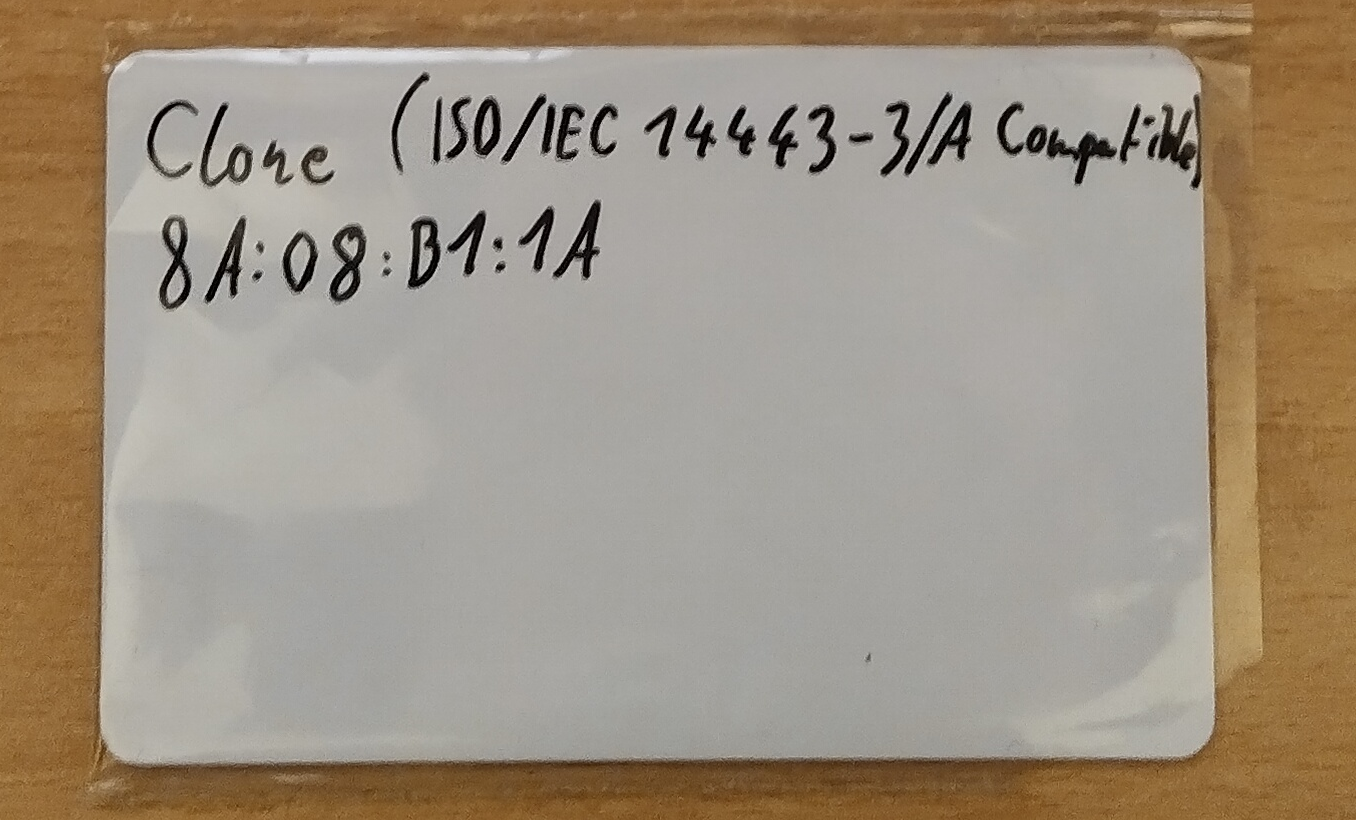 Clone (ISO/IEC 14443-3/A Compatible)
8A:08:B1:1A